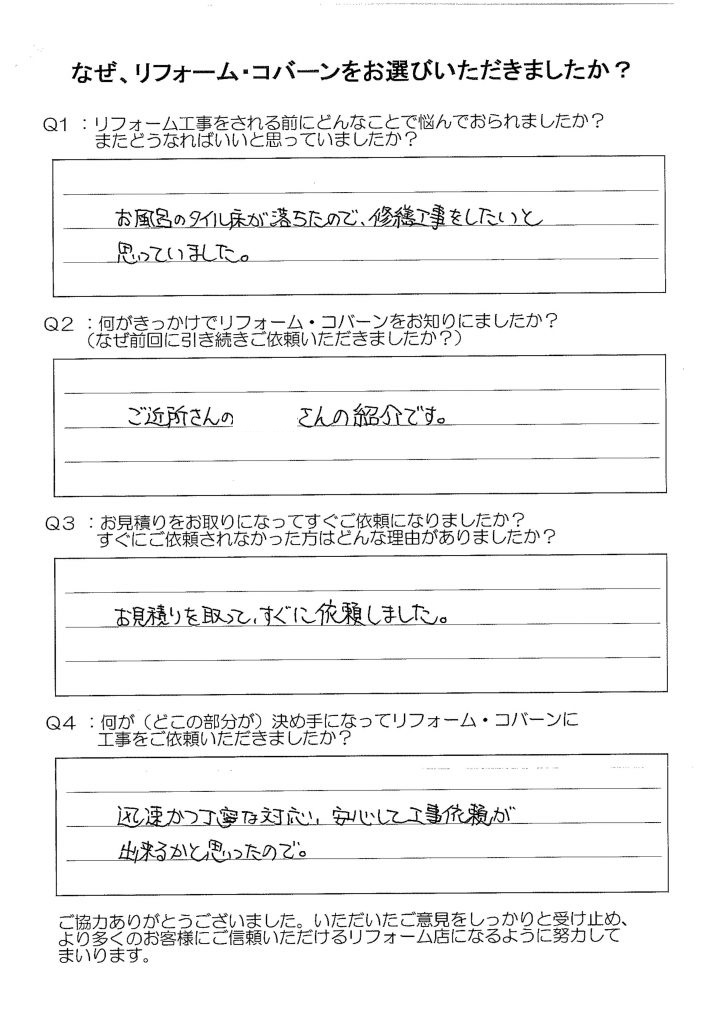 なぜ、リフォーム・コバーンをお選びいただきましたか？
Q1 ：リフォーム工事をされる前にどんなことで悩んでおられましたか？
またどうなればいいと思っていましたか？
お風呂のタイル床が落ちたので、修繕工事をしたいと
思っていました。
Q2 ：何がきっかけでリフォーム・コバーンをお知りにましたか？
（なぜ前回に引き続きご依頼いただきましたか？）
ご近所さんの　　　さんの紹介です。
Q3 ：お見積りをお取りになってすぐご依頼になりましたか？
すぐにご依頼されなかった方はどんな理由がありましたか？
お見積りを取って、すぐに依頼しました。
Q4 ：何が（どこの部分が）決め手になってリフォーム・コバーンに
工事をご依頼いただきましたか？
迅速かつ丁寧な対応、安心して工事依頼が
出来るかと思ったので。
ご協力ありがとうございました。いただいたご意見をしっかりと受け止め、
より多くのお客様にご信頼いただけるリフォーム店になるように努力して
まいります。